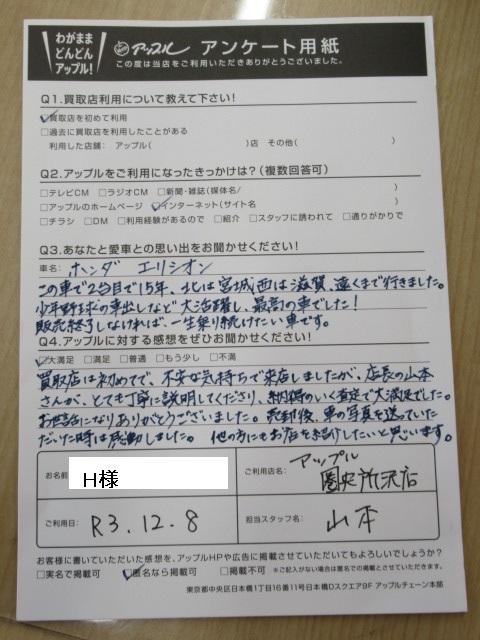 わがまま
どんどん
アップル!
アップル アンケート用紙
この度は当店をご利用いただきありがとうございました。
Q1.買取店利用について教えて下さい!
☑買取店を初めて利用
□過去に買取店を利用したことがある
利用した店舗: アップル( )店 その他( )
Q2.アップルをご利用になったきっかけは?(複数回答可)
□テレビCM □ラジオCM □新聞・雑誌(媒体名/ )
□アップルのホームページ ☑インターネット(サイト名 )
□チラシ □DM □利用経験があるので □紹介 □スタッフに誘われて □通りがかりで
Q3.あなたと愛車との思い出をお聞かせください!
車名: ホンダ エリシオン
この車で2台目で15年、北は宮城西は滋賀、遠くまで行きました。
少年野球の車出しなど大活躍し、最高の車でした!
販売終了しなければ、一生乗り続けたい車です。
Q4.アップルに対する感想をぜひお聞かせください!
☑大満足 □満足 □普通 □もう少し □不満
買取店は初めてで、不安な気持ちで来店しましたが、店長の山本
さんが、とても丁寧に説明してくださり、納得のいく査定で大満足でした。
お世話になりありがとうございました。売却後、車の写真を送っていた
だいた時は感動しました。 他の方にもお店を紹介したいと思います。
お名前 H様
ご利用店名: アップル
圏央所沢店
ご利用日: R3.12.8
担当スタッフ名: 山本
お客様に書いていただいた感想を、アップルHPや広告に掲載させていただいてもよろしいでしょうか?
□実名で掲載可 ☑匿名なら掲載可 □掲載不可 ※ご記入がない場合は匿名での掲載とさせていただきます。
東京都中央区日本橋1丁目16番11号日本橋Dスクエア9F アップルチェーン本部